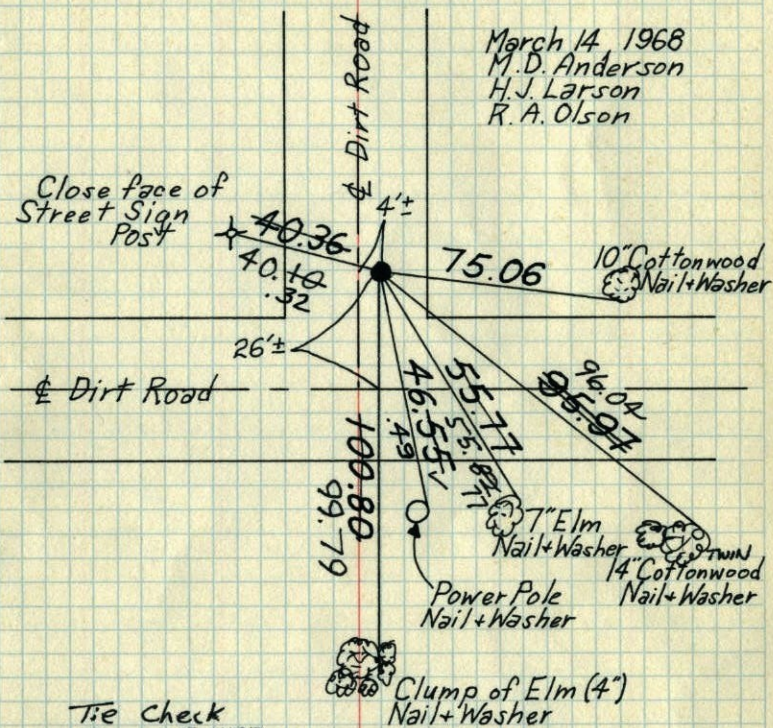 March 14, 1968
M.D. Anderson
H.J. Larson
R.A. Olson
℄ Dirt Road
Close face of
Street Sign
Post
4'±
40.36
40.10
.32
75.06
10" Cottonwood
Nail+Washer
26'±
℄ Dirt Road
100.80
99.79
46.55 ✓
.49
55.77
55.82
77
96.04
95.97
7" Elm
Nail+Washer
TWIN
14" Cottonwood
Nail+Washer
Power Pole
Nail+Washer
Clump of Elm (4")
Nail+Washer
Tie Check